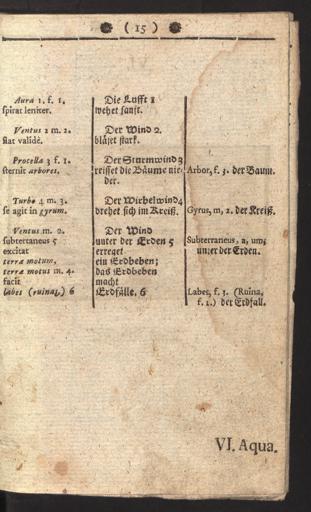 ( 15 )
Aura 1. f. 1.
spirat leniter.
Ventus 2 m. 2.
flat validè.
Procella 3 f. 1.
sternit arbores.
Turbo 4 m. 3.
se agit in gyrum.
Ventus m. 2.
subterraneus 5
excitat
terræ motum,
terræ motus m. 4.
facit
labes (ruinas,) 6
Die Lufft 1
wehet sanft.
Der Wind 2.
bläset stark.
Der Sturmwind 3
reisset die Bäume nie-
der.
Der Wirbelwind 4
drehet sich im Kreiß.
Der Wind
unter der Erden 5
erreget
ein Erdbeben;
das Erdbeben
macht
Erdfälle. 6
Arbor, f. 3. der Baum.
Gyrus, m, 2. der Kreiß.
Subterraneus, a, um;
unter der Erden.
Labes, f. 3. (Ruina,
f. 1.) der Erdfall.
VI. Aqua.